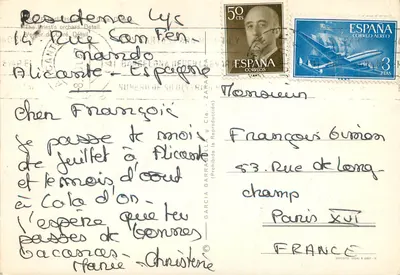 Residence Lys
14 Rue San Fer-
nando
Alicante - Espagne
Cher François
je passe le mois
de juillet à Alicante
et le mois d'août
à Cota d'or-
J'espère que tu
passes de bonnes
vacances-
Marie-Christine
50
CTS
ESPAÑA
CORREO
ESPAÑA
CORREO AEREO
3
PTAS
Monsieur
François
53. Rue de Long-
champ
Paris XVI
FRANCE
GARCIA GARRABELLA
(Prohibida la Reproducción)